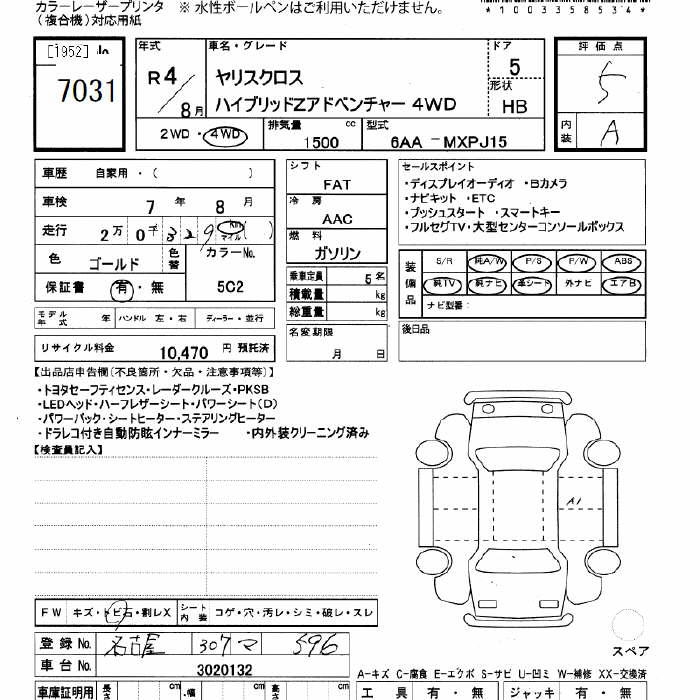 カラーレーザープリンタ ※ 水性ボールペンはご利用いただけません。
(複合機)対応用紙
*1003385314*
[1952]
7031
年式 R4/8月
車名・グレード
ヤリスクロス
ハイブリッドZアドベンチャー 4WD
ドア 5
形状 HB
2WD・4WD 排気量 1500 cc 型式 6AA -MXPJ15
評価点
5
内装 A
車歴 自家用・( )
車検 7年 8月
走行 2万 0千 329 km マイル ( )
色 ゴールド 色替 カラーNo. 5C2
保証書 有・無
モデル年式 年 ハンドル 左・右 ディーラー・並行
リサイクル料金 10,470 円 預託済
シフト
FAT
冷房
AAC
燃料
ガソリン
乗車定員 5名
積載量 kg
総重量 kg
名変期限
月 日
セールスポイント
・ディスプレイオーディオ ・Bカメラ
・ナビキット ・ETC
・プッシュスタート ・スマートキー
・フルセグTV・大型センターコンソールボックス
装備品
S/R 純A/W P/S P/W ABS
純TV 純ナビ 革シート 外ナビ エアB
ナビ型番:
後日品
【出品店申告欄(不良箇所・欠品・注意事項等)】
・トヨタセーフティセンス・レーダークルーズ・PKSB
・LEDヘッド・ハーフレザーシート・パワーシート(D)
・パワーバック・シートヒーター・ステアリングヒーター
・ドラレコ付き自動防眩インナーミラー ・内外装クリーニング済み
【検査員記入】
A1
FW キズ・トビ石・割レX シート内装 コゲ・穴・汚レ・シミ・破レ・スレ
スペア
登録 No. 名古屋 307 マ 596
車台 No. 3020132
A-キズ C-腐食 E-エクボ S-サビ U-凹ミ W-補修 XX-交換済
車庫証明用 長さ cm ・幅 cm 高さ cm
工具 有・無 ジャッキ 有・無